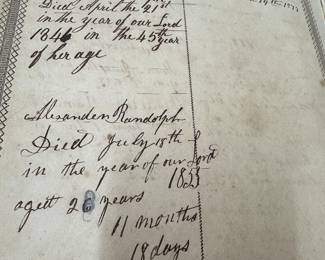 Died April the 21st
in the year of our Lord
1846 in the 45th year
of her age
Alexander Randolph
Died July 18th
in the year of our Lord
1853
aged 26 years
11 months
18 days